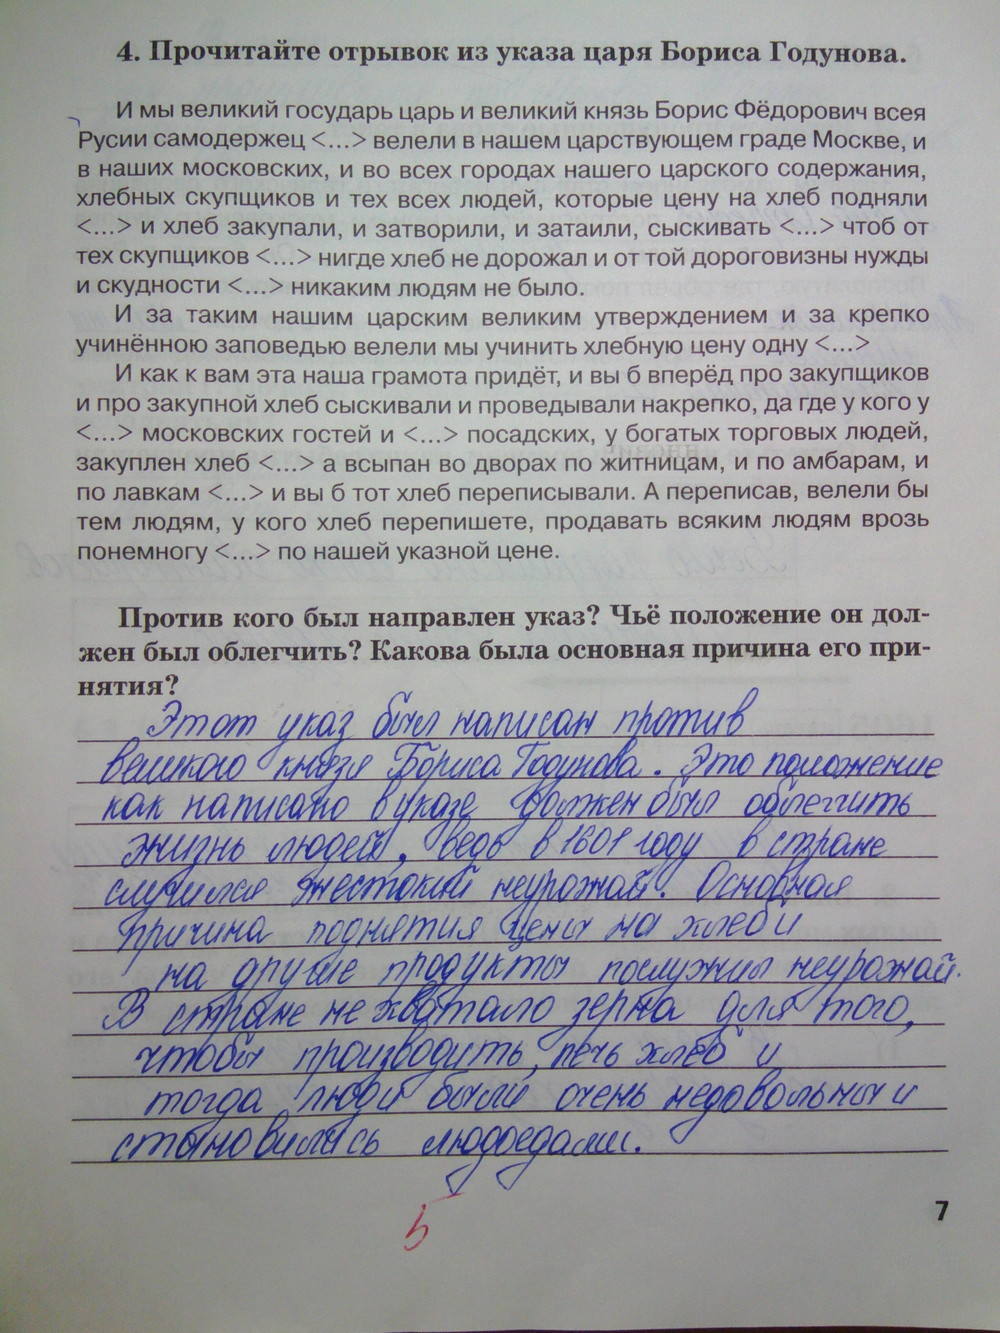 4. Прочитайте отрывок из указа царя Бориса Годунова.
И мы великий государь царь и великий князь Борис Фёдорович всея
Русии самодержец <...> велели в нашем царствующем граде Москве, и
в наших московских, и во всех городах нашего царского содержания,
хлебных скупщиков и тех всех людей, которые цену на хлеб подняли
<...> и хлеб закупали, и затворили, и затаили, сыскивать <...> чтоб от
тех скупщиков <...> нигде хлеб не дорожал и от той дороговизны нужды
и скудности <...> никаким людям не было.
И за таким нашим царским великим утверждением и за крепко
учинённою заповедью велели мы учинить хлебную цену одну <...>
И как к вам эта наша грамота придёт, и вы б вперёд про закупщиков
и про закупной хлеб сыскивали и проведывали накрепко, да где у кого у
<...> московских гостей и <...> посадских, у богатых торговых людей,
закуплен хлеб <...> а всыпан во дворах по житницам, и по амбарам, и
по лавкам <...> и вы б тот хлеб переписывали. А переписав, велели бы
тем людям, у кого хлеб перепишете, продавать всяким людям врозь
понемногу <...> по нашей указной цене.
Против кого был направлен указ? Чьё положение он дол-
жен был облегчить? Какова была основная причина его при-
нятия?
Этот указ был написан против
великого князя Бориса Годунова. Это положение
как написано в указе должен был облегчить
жизнь людей, ведь в 1601 году в стране
случился жестокий неурожай. Основная
причина поднятия цены на хлеб и
на другие продукты послужил неурожай.
В стране не хватало зерна для того,
чтобы производить, печь хлеб и
тогда люди были очень недовольны и
становились людоедами.
5
7